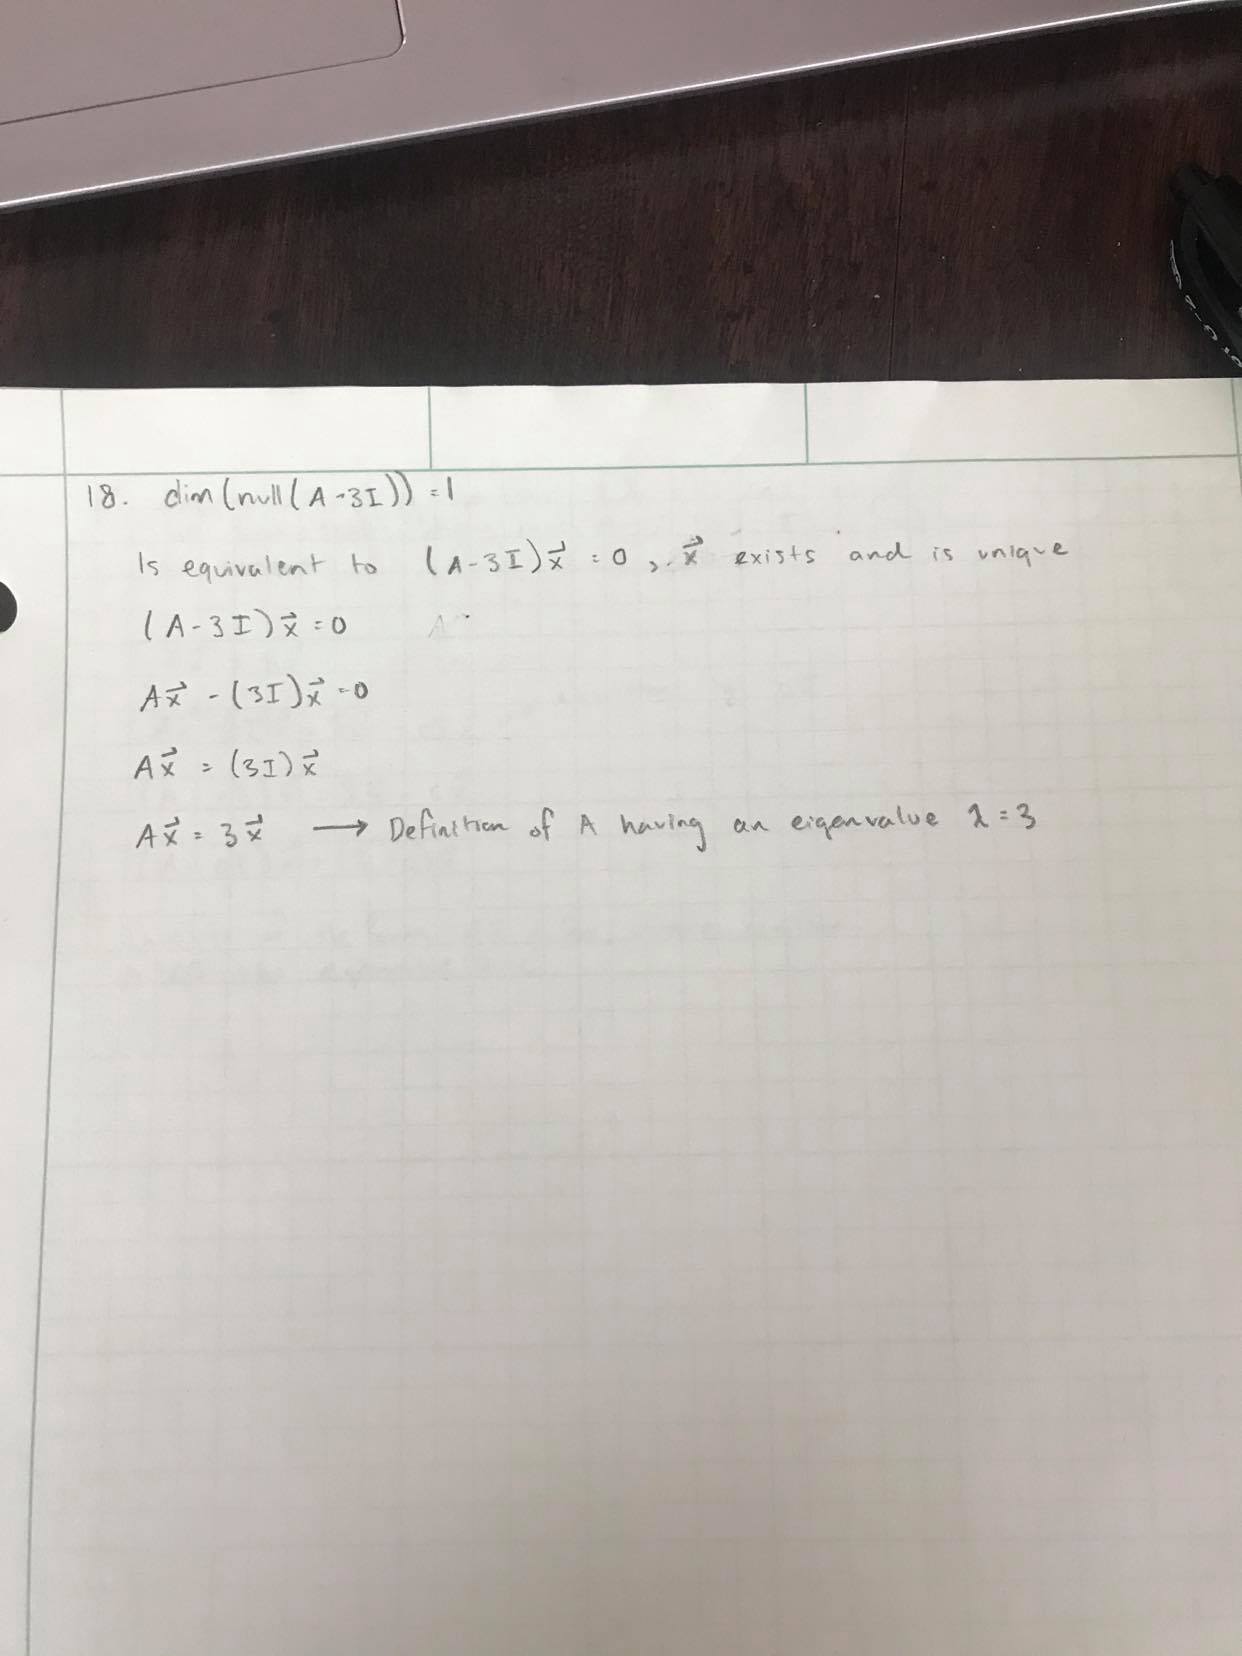 18. dim(null(A-3I)) = 1
Is equivalent to (A-3I)x⃗ = 0, x⃗ exists and is unique
(A-3I)x⃗ = 0
Ax⃗ - (3I)x⃗ = 0
Ax⃗ = (3I)x⃗
Ax⃗ = 3x⃗ → Definition of A having an eigenvalue λ = 3